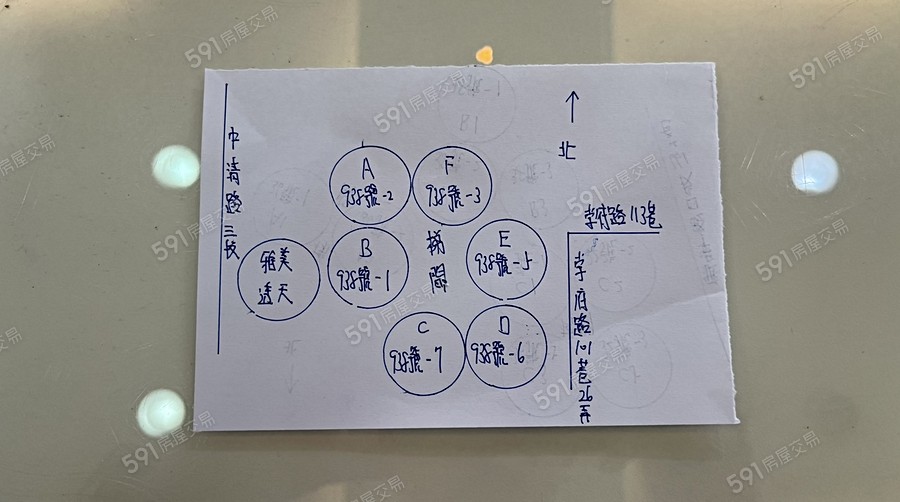 中清路三段
北
A
938號-2
F
938號-3
学府路113巷
雅美
透天
B
938號-1
梯間
E
938號-5
学府路101巷26弄
C
938號-7
D
938號-6
591房屋交易
591房屋交易
591房屋交易
591房屋交易
591房屋交易
591房屋交易
591房屋交易
591房屋交易
591房屋交易
591房屋交易
591房屋交易
591房屋交易